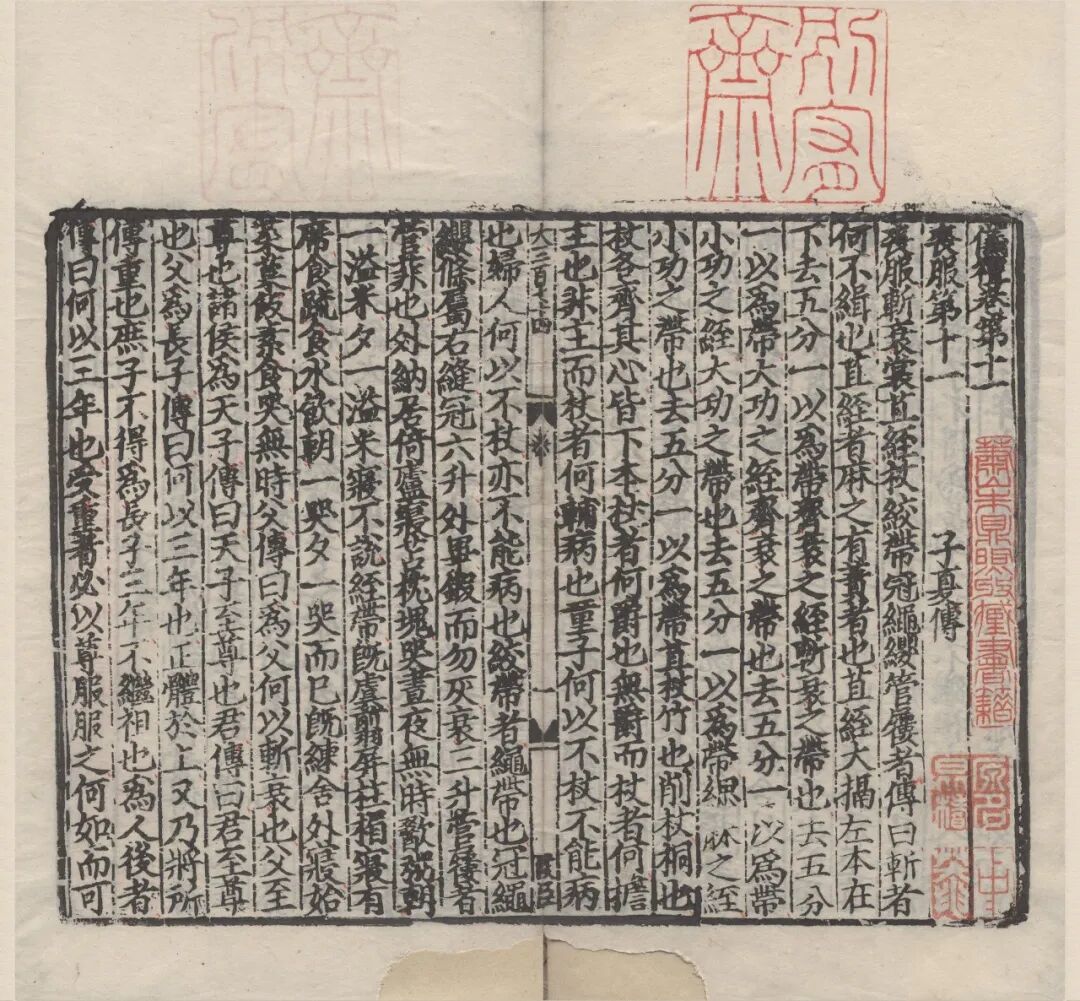 別宥齋
儀禮卷第十一
喪服第十一 子夏傳
喪服斬衰裳苴絰杖絞帶冠繩纓管屨者傳曰斬者
何不緝也苴絰者麻之有蕡者也苴絰大搹左本在
下去五分一以爲帶齊衰之絰斬衰之帶也去五分
一以爲帶大功之絰齊衰之帶也去五分一以爲帶
小功之絰大功之帶也去五分一以爲帶緦麻之絰
小功之帶也去五分一以爲帶苴杖竹也削杖桐也
杖各齊其心皆下本杖者何爵也無爵而杖者何擔
主也非主而杖者何輔病也童子何以不杖不能病
也婦人何以不杖亦不能病也絞帶者繩帶也冠繩
纓條屬右縫冠六升外畢鍛而勿灰衰三升管屨者
管菲也外納居倚廬寢苫枕塊哭晝夜無時歠粥朝
一溢米夕一溢米寢不說絰帶既虞翦屏柱楣寢有
席食疏食水飲朝一哭夕一哭而已既練舍外寢始
菜菓飯素食哭無時父傳曰爲父何以斬衰也父至
尊也諸侯爲天子傳曰天子至尊也君傳曰君至尊
也父爲長子傳曰何以三年也正體於上又乃將所
傳重也庶子不得爲長子三年不繼祖也爲人後者
傳曰何以三年也受重者必以尊服服之何如而可